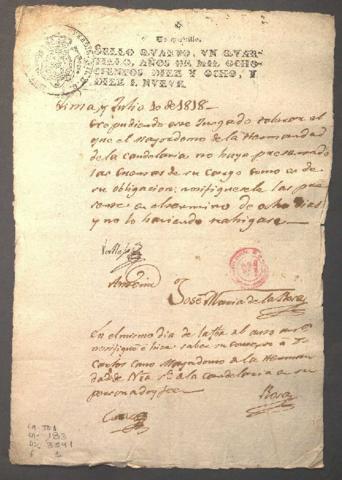 Un quartillo.
SELLO QVARTO, VN QVAR-
TILLO, AÑOS DE MIL OCHO-
CIENTOS DIEZ Y OCHO, Y
DIEZ Y NUEVE.
Lima y Julio 10 de 1818-
No pudiendo este Juzgado tolerar el
que el Mayordomo de la Hermandad
de la Candelaria no haya presentado
las cuentas de su cargo como es de
su obligacion: notifiquesele las pre
sente en el termino de ocho dias
y no lo haciendo traigase
Antemi
Josef Maria de la Rosa
En el mismo dia de la fha. al auto
notifiqué é hice saber su contexto a D.
Carlos Cano Mayordomo de la Herman
dad de Nra Sra de la Candelaria en su
persona doy fee
Cano
Rosa
183
3841
1